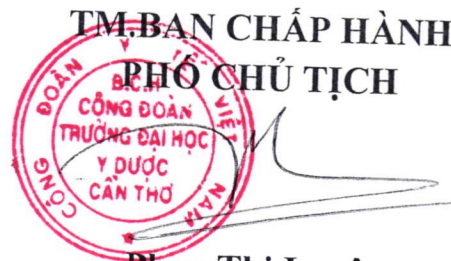 TM.BAN CHẤP HÀNH
PHÓ CHỦ TỊCH
CÔNG ĐOÀN Y TẾ VIỆT NAM
B.C.H
CÔNG ĐOÀN
TRƯỜNG ĐẠI HỌC
Y DƯỢC
CẦN THƠ
Thị